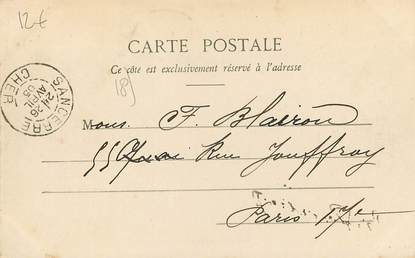 12€
CARTE POSTALE
Ce côté est exclusivement réservé à l'adresse
189
SANCERRE
CHER
26
AVRIL
05
Mons. F. Blairon
55 Rue Jouffroy
Paris 17e